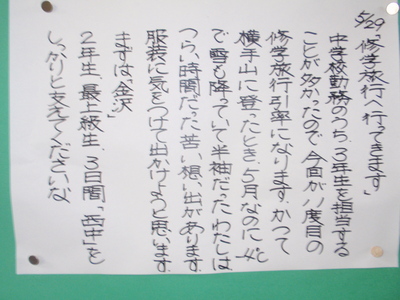 5/29「修学旅行へ行ってきます」
中学校勤務のうち3年生を担当する
ことが多かったので、今回が八度目の
修学旅行引率になります。かつて
横手山に登ったとき、5月なのに-2℃
で雪も降っていて半袖だったわたしは
つらい時間だった苦い想い出があります。
服装に気をつけて出かけようと思います。
まずは“金沢”
2年生、最上級生、3日間、“西中”を
しっかりと支えてくださいな